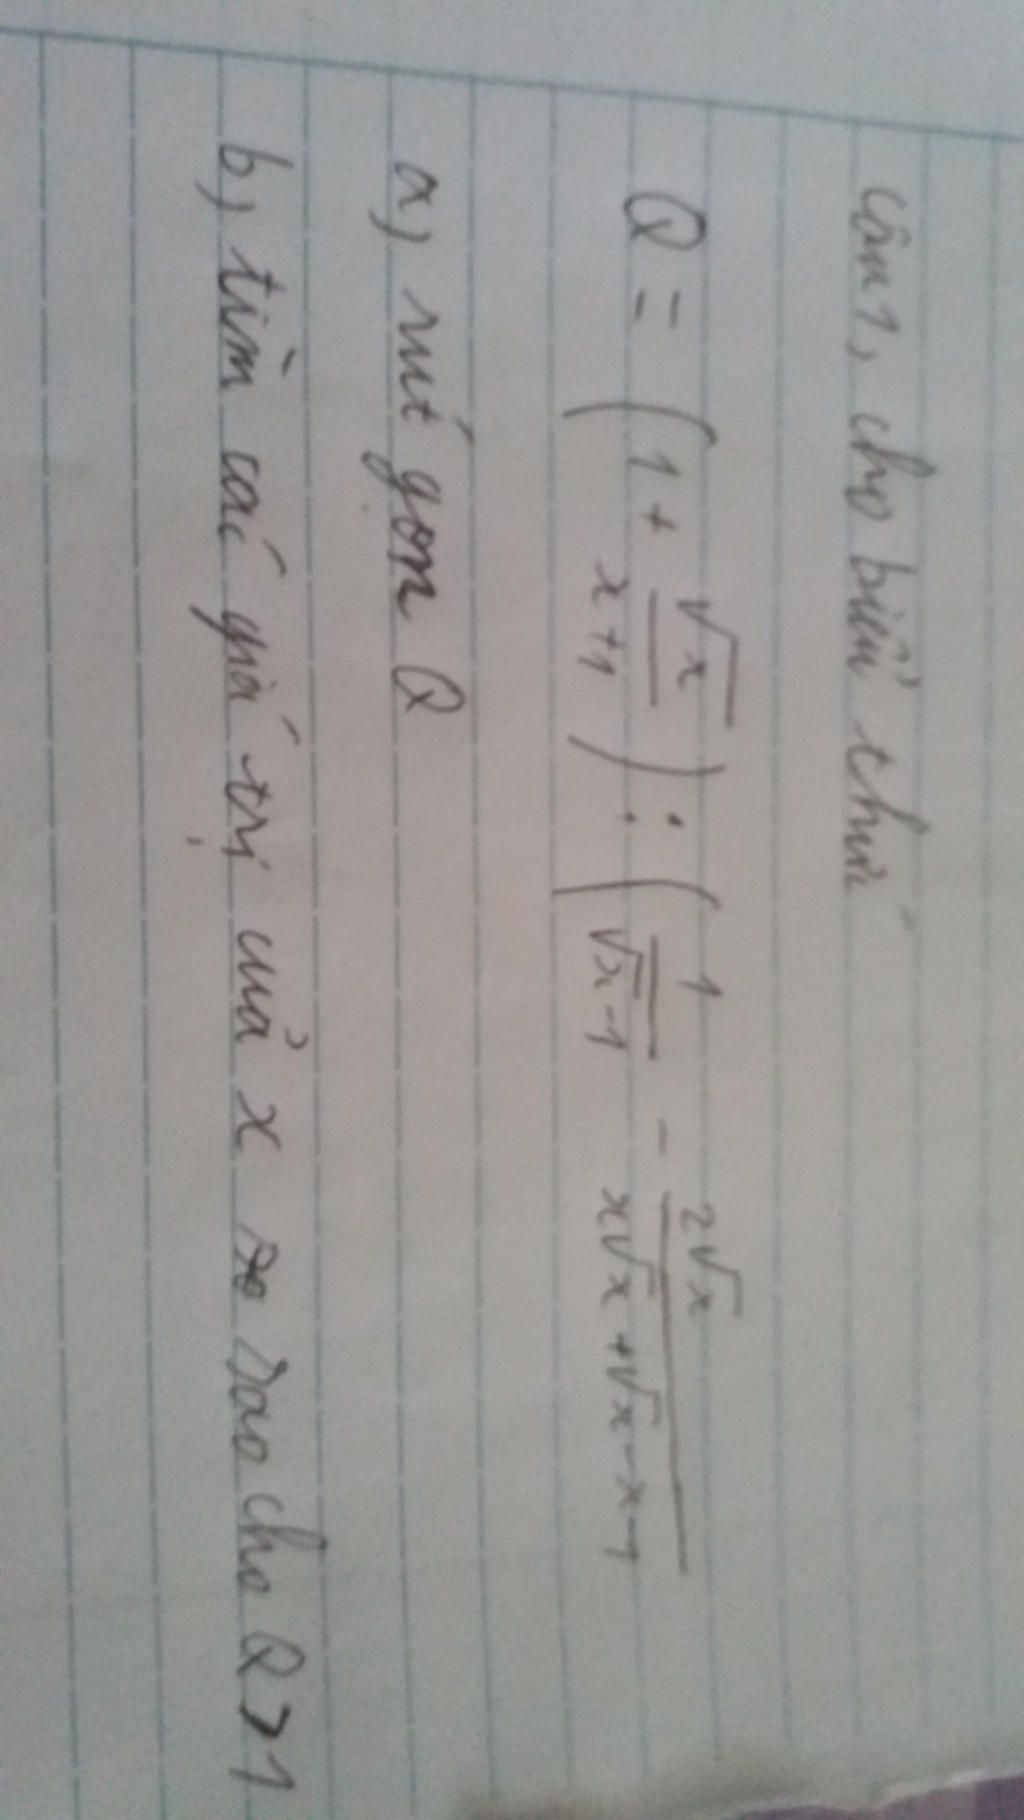 câu 1, cho biểu thức
Q = ( 1 + √x / x+1 ) : ( 1 / √x-1 - 2√x / x√x +√x-x-1
a, rút gọn Q
b, tìm các giá trị của x sao cho Q>1